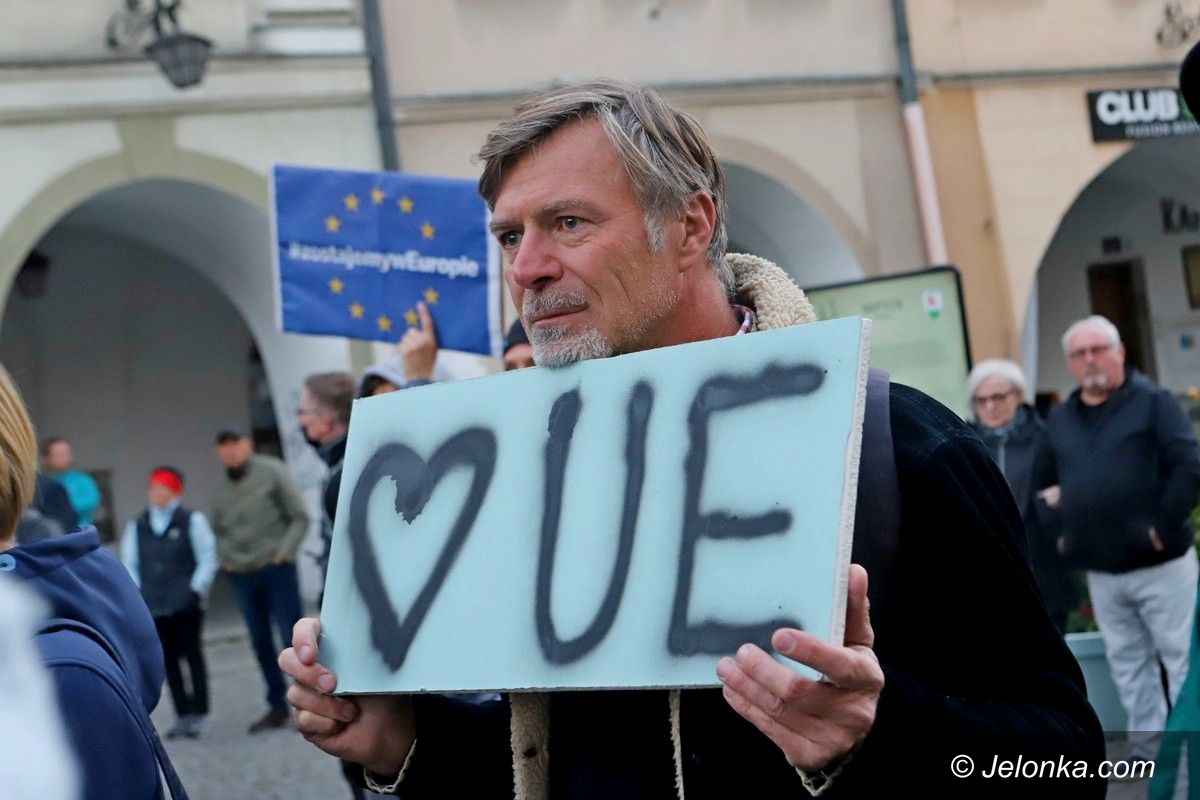 CLUB
#zostajemywEuropie
♥UE
© Jelonka.com